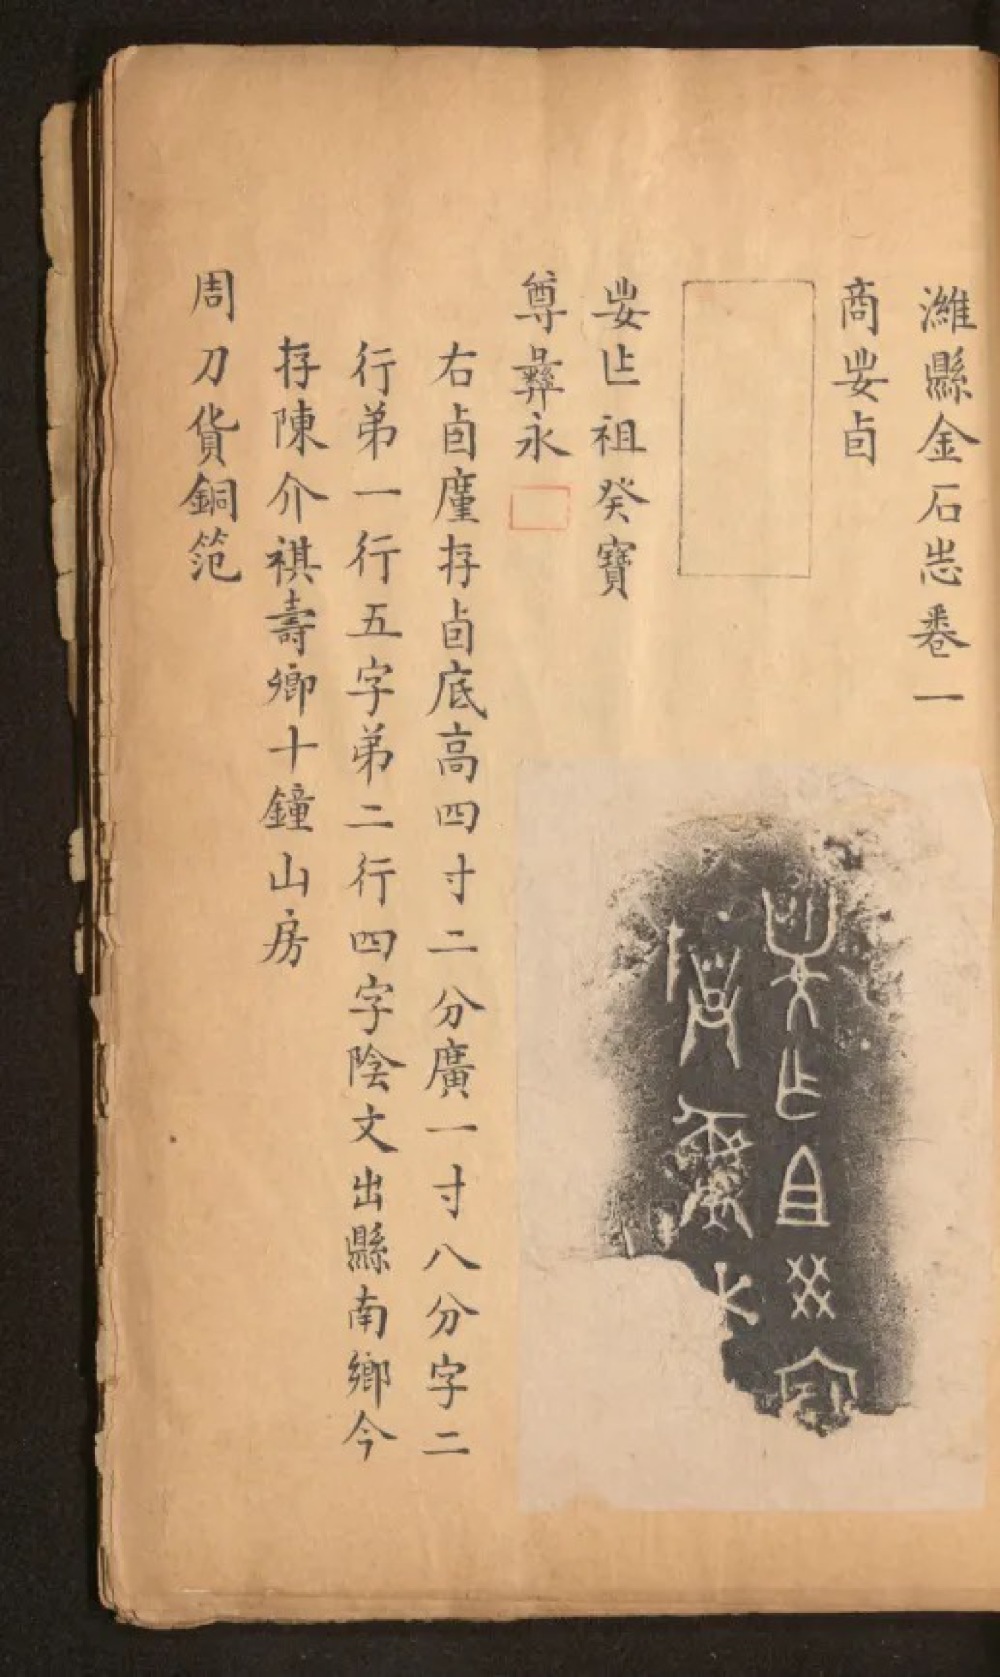 濰縣金石志卷一
商𡛟卣
𡛟乍祖癸寶
尊彝永
右卣廑存卣底高四寸二分廣一寸八分字二
行弟一行五字弟二行四字陰文出縣南鄉今
存陳介祺壽卿十鐘山房
周刀貨銅笵